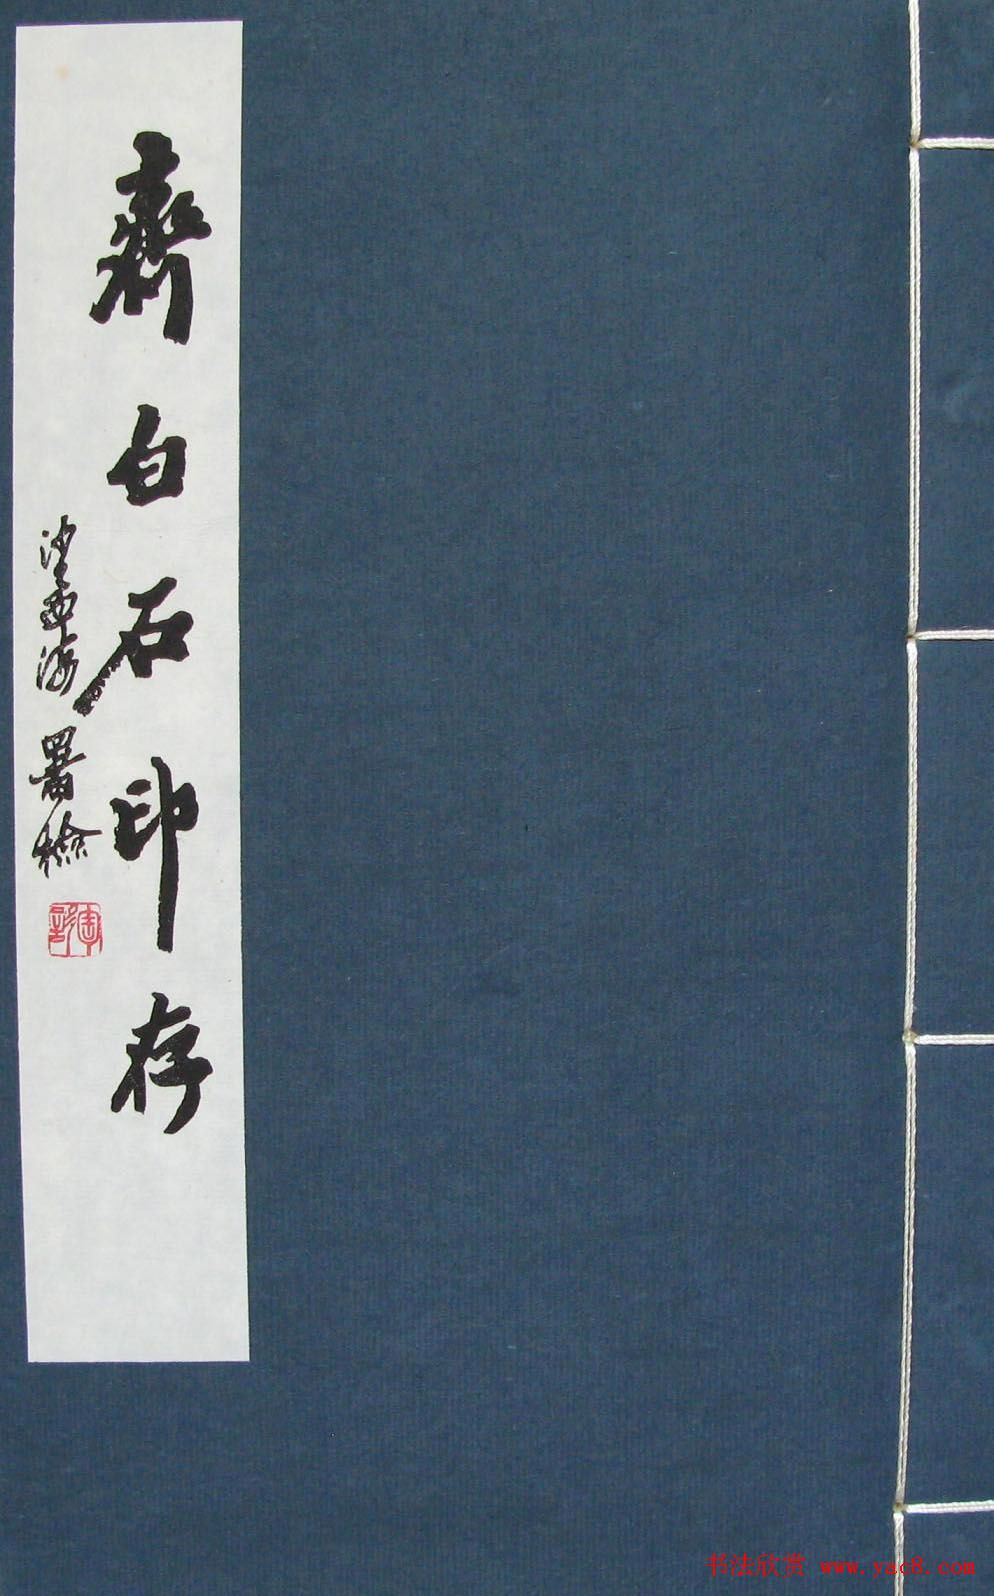 齊白石印存
沙孟海署檢
书法欣赏 www.yac8.com